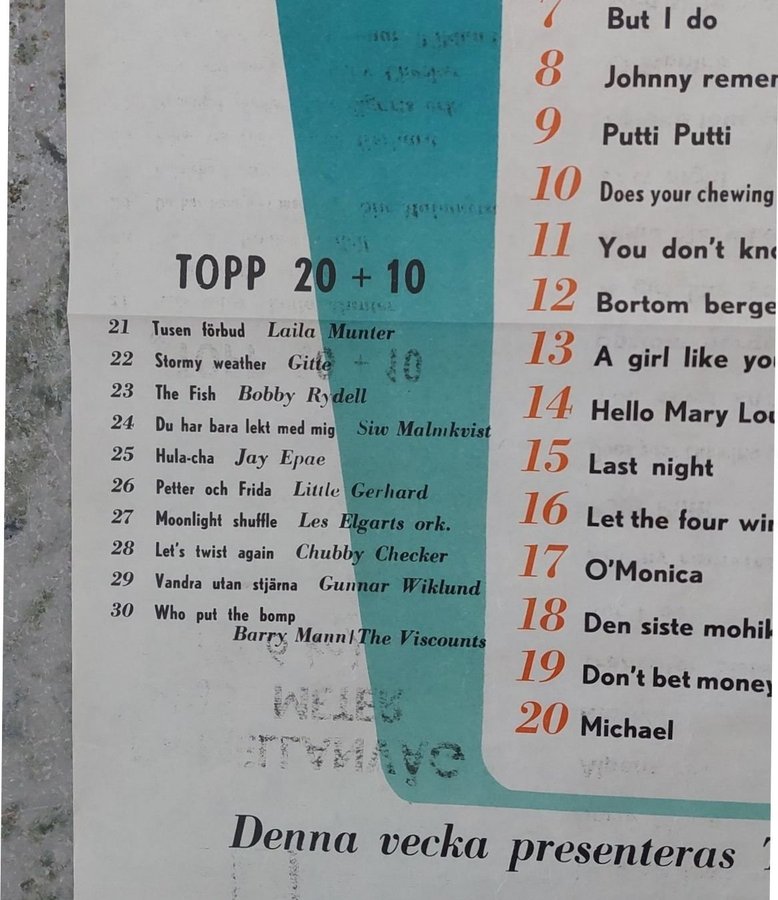 7 But I do
8 Johnny remer
9 Putti Putti
10 Does your chewing
11 You don't kno
12 Bortom berge
13 A girl like yo
14 Hello Mary Lou
15 Last night
16 Let the four wi
17 O'Monica
18 Den siste mohik
19 Don't bet money
20 Michael
TOPP 20 + 10
21 Tusen förbud Laila Munter
22 Stormy weather Gitte
23 The Fish Bobby Rydell
24 Du har bara lekt med mig Siw Malmkvist
25 Hula-cha Jay Epae
26 Petter och Frida Little Gerhard
27 Moonlight shuffle Les Elgarts ork.
28 Let's twist again Chubby Checker
29 Vandra utan stjärna Gunnar Wiklund
30 Who put the bomp
Barry Mann/The Viscounts
Denna vecka presenteras